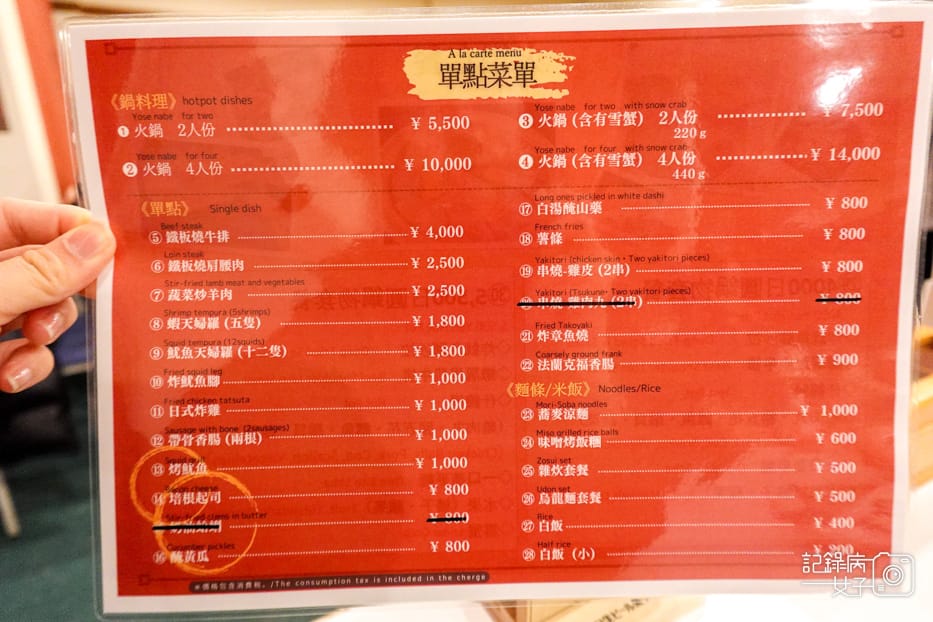 A la carte menu
單點菜單
《鍋料理》 hotpot dishes
Yose nabe for two
① 火鍋 2人份 ¥ 5,500
Yose nabe for four
② 火鍋 4人份 ¥ 10,000
Yose nabe for two with snow crab
③ 火鍋 (含有雪蟹) 2人份 ¥ 7,500
220g
Yose nabe for four with snow crab
④ 火鍋 (含有雪蟹) 4人份 ¥ 14,000
440g
《單點》 Single dish
Beef steak
⑤ 鐵板燒牛排 ¥ 4,000
Loin steak
⑥ 鐵板燒肩腰肉 ¥ 2,500
Stir-fried lamb meat and vegetables
⑦ 蔬菜炒羊肉 ¥ 2,500
Shrimp tempura (5shrimps)
⑧ 蝦天婦羅 (五隻) ¥ 1,800
Squid tempura (12squids)
⑨ 魷魚天婦羅 (十二隻) ¥ 1,800
Fried squid leg
⑩ 炸魷魚腳 ¥ 1,000
Fried chicken tatsuta
⑪ 日式炸雞 ¥ 1,000
Sausage with bone (2sausages)
⑫ 帶骨香腸 (兩根) ¥ 1,000
Squid grill
⑬ 烤魷魚 ¥ 1,000
Bacon cheese
⑭ 培根起司 ¥ 800
Stir-fried clams in butter
¥ 800
Cucumber pickles
⑯ 醃黃瓜 ¥ 800
Long ones pickled in white dashi
⑰ 白湯醃山藥 ¥ 800
French fries
⑱ 薯條 ¥ 800
Yakitori (chicken skin・Two yakitori pieces)
⑲ 串燒-雞皮 (2串) ¥ 800
Yakitori (Tsukune・Two yakitori pieces)
⑳ 串燒-雞肉丸 (2串) ¥ 800
Fried Takoyaki
㉑ 炸章魚燒 ¥ 800
Coarsely ground frank
㉒ 法蘭克福香腸 ¥ 900
《麵條/米飯》 Noodles/Rice
Mori-Soba noodles
㉓ 蕎麥涼麵 ¥ 1,000
Miso grilled rice balls
㉔ 味噌烤飯糰 ¥ 600
Zosui set
㉕ 雜炊套餐 ¥ 500
Udon set
㉖ 烏龍麵套餐 ¥ 500
Rice
㉗ 白飯 ¥ 400
Half rice
㉘ 白飯 (小) ¥ 200
※價格包含消費稅。/The consumption tax is included in the charge
記錄病
女子